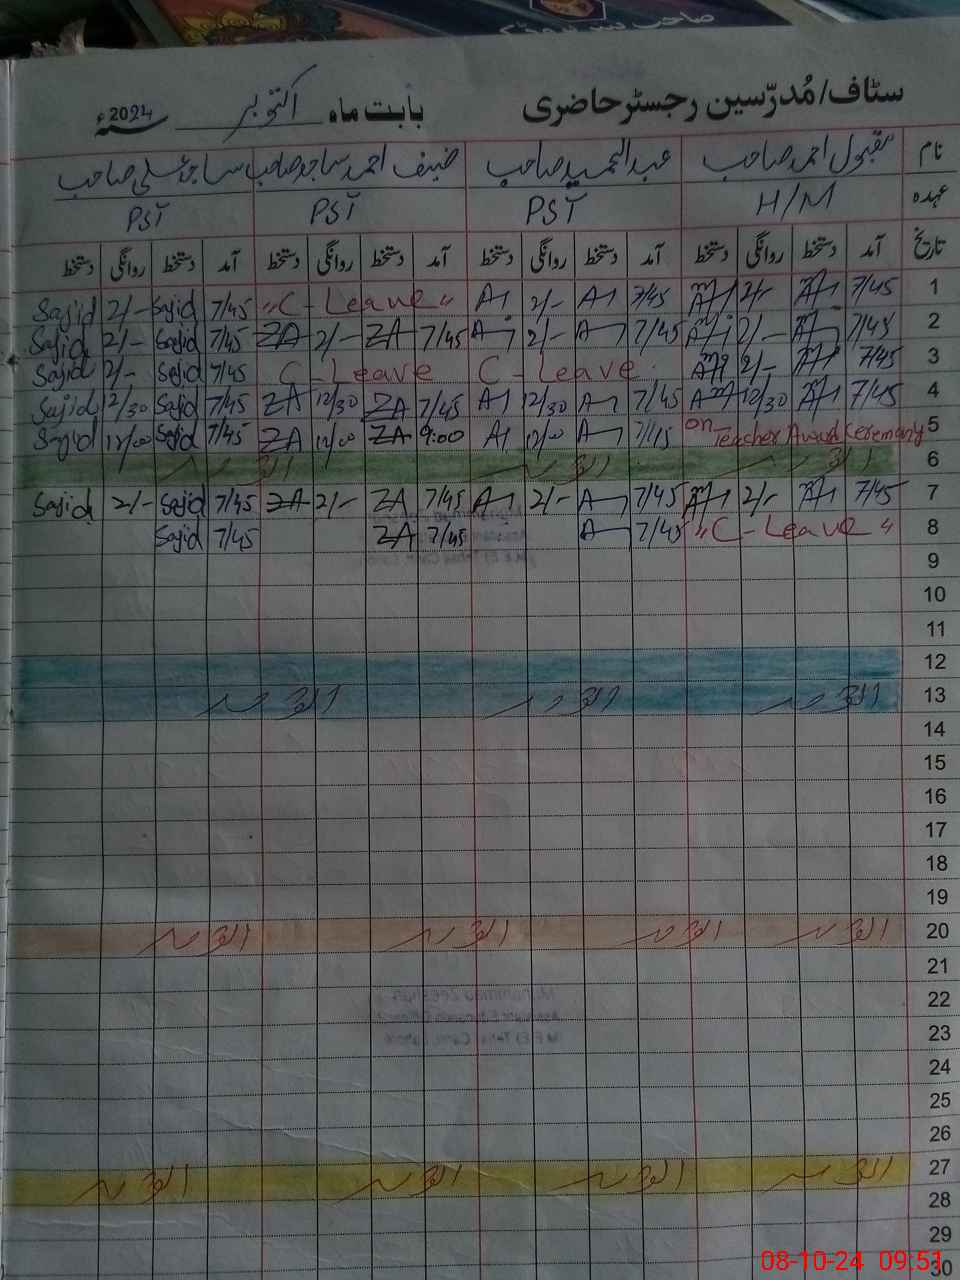 سٹاف/مُدرّسین رجسٹر حاضری بابت ماہ اکتوبر سنہ 2024ء
نام مقبول احمد صاحب عبدالحمید صاحب احمد ساجد صاحب ساجد علی صاحب
عہدہ H/M PST PST PST
تاریخ آمد دستخط روانگی دستخط آمد دستخط روانگی دستخط آمد دستخط روانگی دستخط آمد دستخط روانگی دستخط
1 7/45 2/- 7/45 A 2/- A "C - Leave" 7/45 Sajid 2/- Sajid
2 7/45 2/- 7/45 A 2/- A 7/45 ZA 2/- ZA 7/45 Sajid 2/- Sajid
3 7/45 2/- C - Leave C - Leave 7/45 Sajid 2/- Sajid
4 7/45 12/30 7/45 A 12/30 A 7/45 ZA 12/30 ZA 7/45 Sajid 12/30 Sajid
5 on Teacher Award Ceremony 7/15 A 12/00 A 9:00 ZA 12/00 ZA 7/45 Sajid 12/00 Sajid
6 اتوار اتوار اتوار
7 7/45 2/- 7/45 A 2/- A 7/45 ZA 2/- ZA 7/45 Sajid 2/- Sajid
8 "C - Leave" 7/45 A 7/45 ZA 7/45 Sajid
9
10
11
12
13 اتوار اتوار اتوار
14
15
16
17
18
19
20 اتوار اتوار اتوار اتوار
21
22
23
24
25
26
27 اتوار اتوار اتوار اتوار
28
29
30
08-10-24 09:51